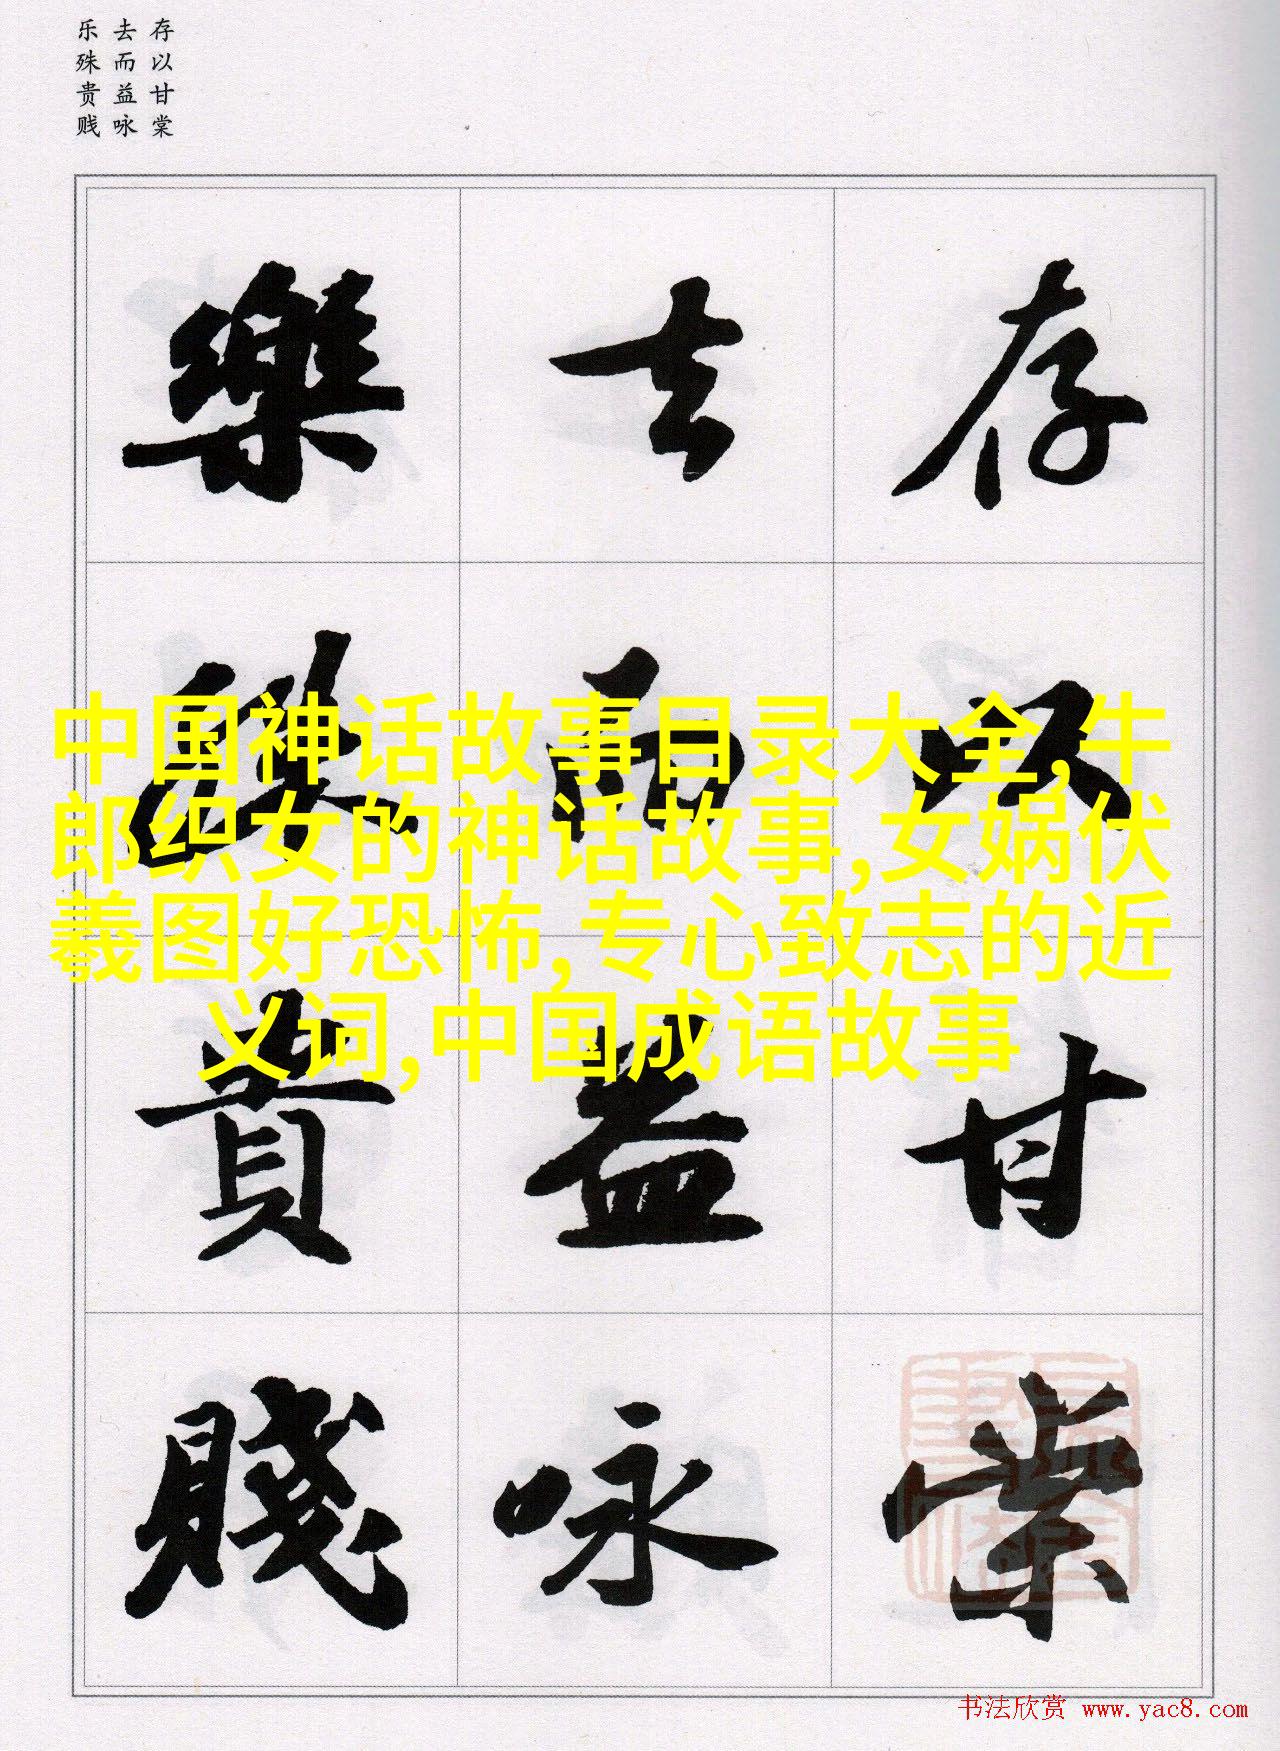 存以甘棠
去而益咏
乐殊贵贱
存以甘棠
去而益咏
樂殊貴賤
中国神话故事目录大全,牛
郎织女的神话故事,女娲伏
羲图好恐怖,专心致志的近
义词,中国成语故事
书法欣赏 www.yac8.com